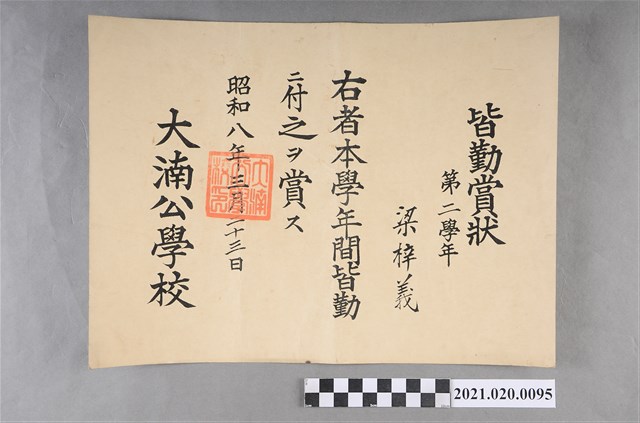 皆勤賞狀
第二學年
梁梓義
右者本學年間皆勤
ニ付之ヲ賞ス
昭和八年三月二十三日
大湳公學校
2021.020.0095